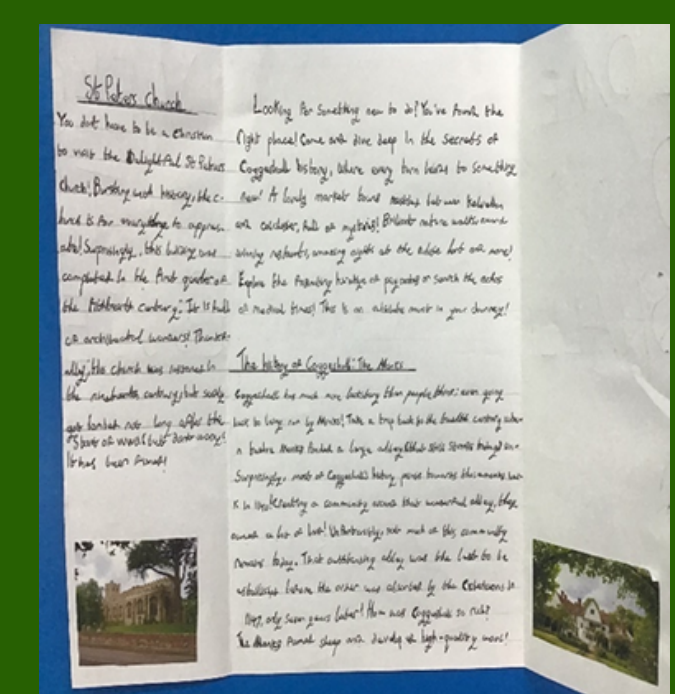 St Peters Church
You don't have to be a christian
to visit the Delightful St Peters
church! Bursting with history, the c-
hurch is for everyone to apprec-
iate! Surprisingly, this luxury was
completed in the first quarter of
the fifthteenth century. It is full
of architectual wonders! Thankf-
ully, the church was restored in
the nineteenth century, but sadly
got bombed not long after the
start of ww2 but don't worry!
It has been fixed!
Looking for Something new to do? You've found the
right place! Come and dive deep In the secrets of
Coggeshall history, where every turn leads to something
new! A lovely market town nestling between Kelvedon
and colchester, full of mysteries! Brilliant nature walks, award
winning restaurants, amazing nights at the and more!
Explore the history of or search the echos
of medical times! This is an absolute must in your Journey!
The history of Coggeshall: The Monks
Coggeshall has much more history than people think: even going
back to being run by Monks! Take a trip back to the twelth century when
a twelve Monks founded a large abbey that still stands today!
Surprisingly, most of Coggeshall's history points towards this moment back
in Creating a community around their wonderful abbey, they
owned a lot of land! Unfortunately, not much of this community
remains today. That outstanding abbey was the last to be
established before the order was absorbed by the Cistercians in
1147, only seven years later! How was Coggeshall so rich?
The Monks farmed sheep and develop a high-quality wool!